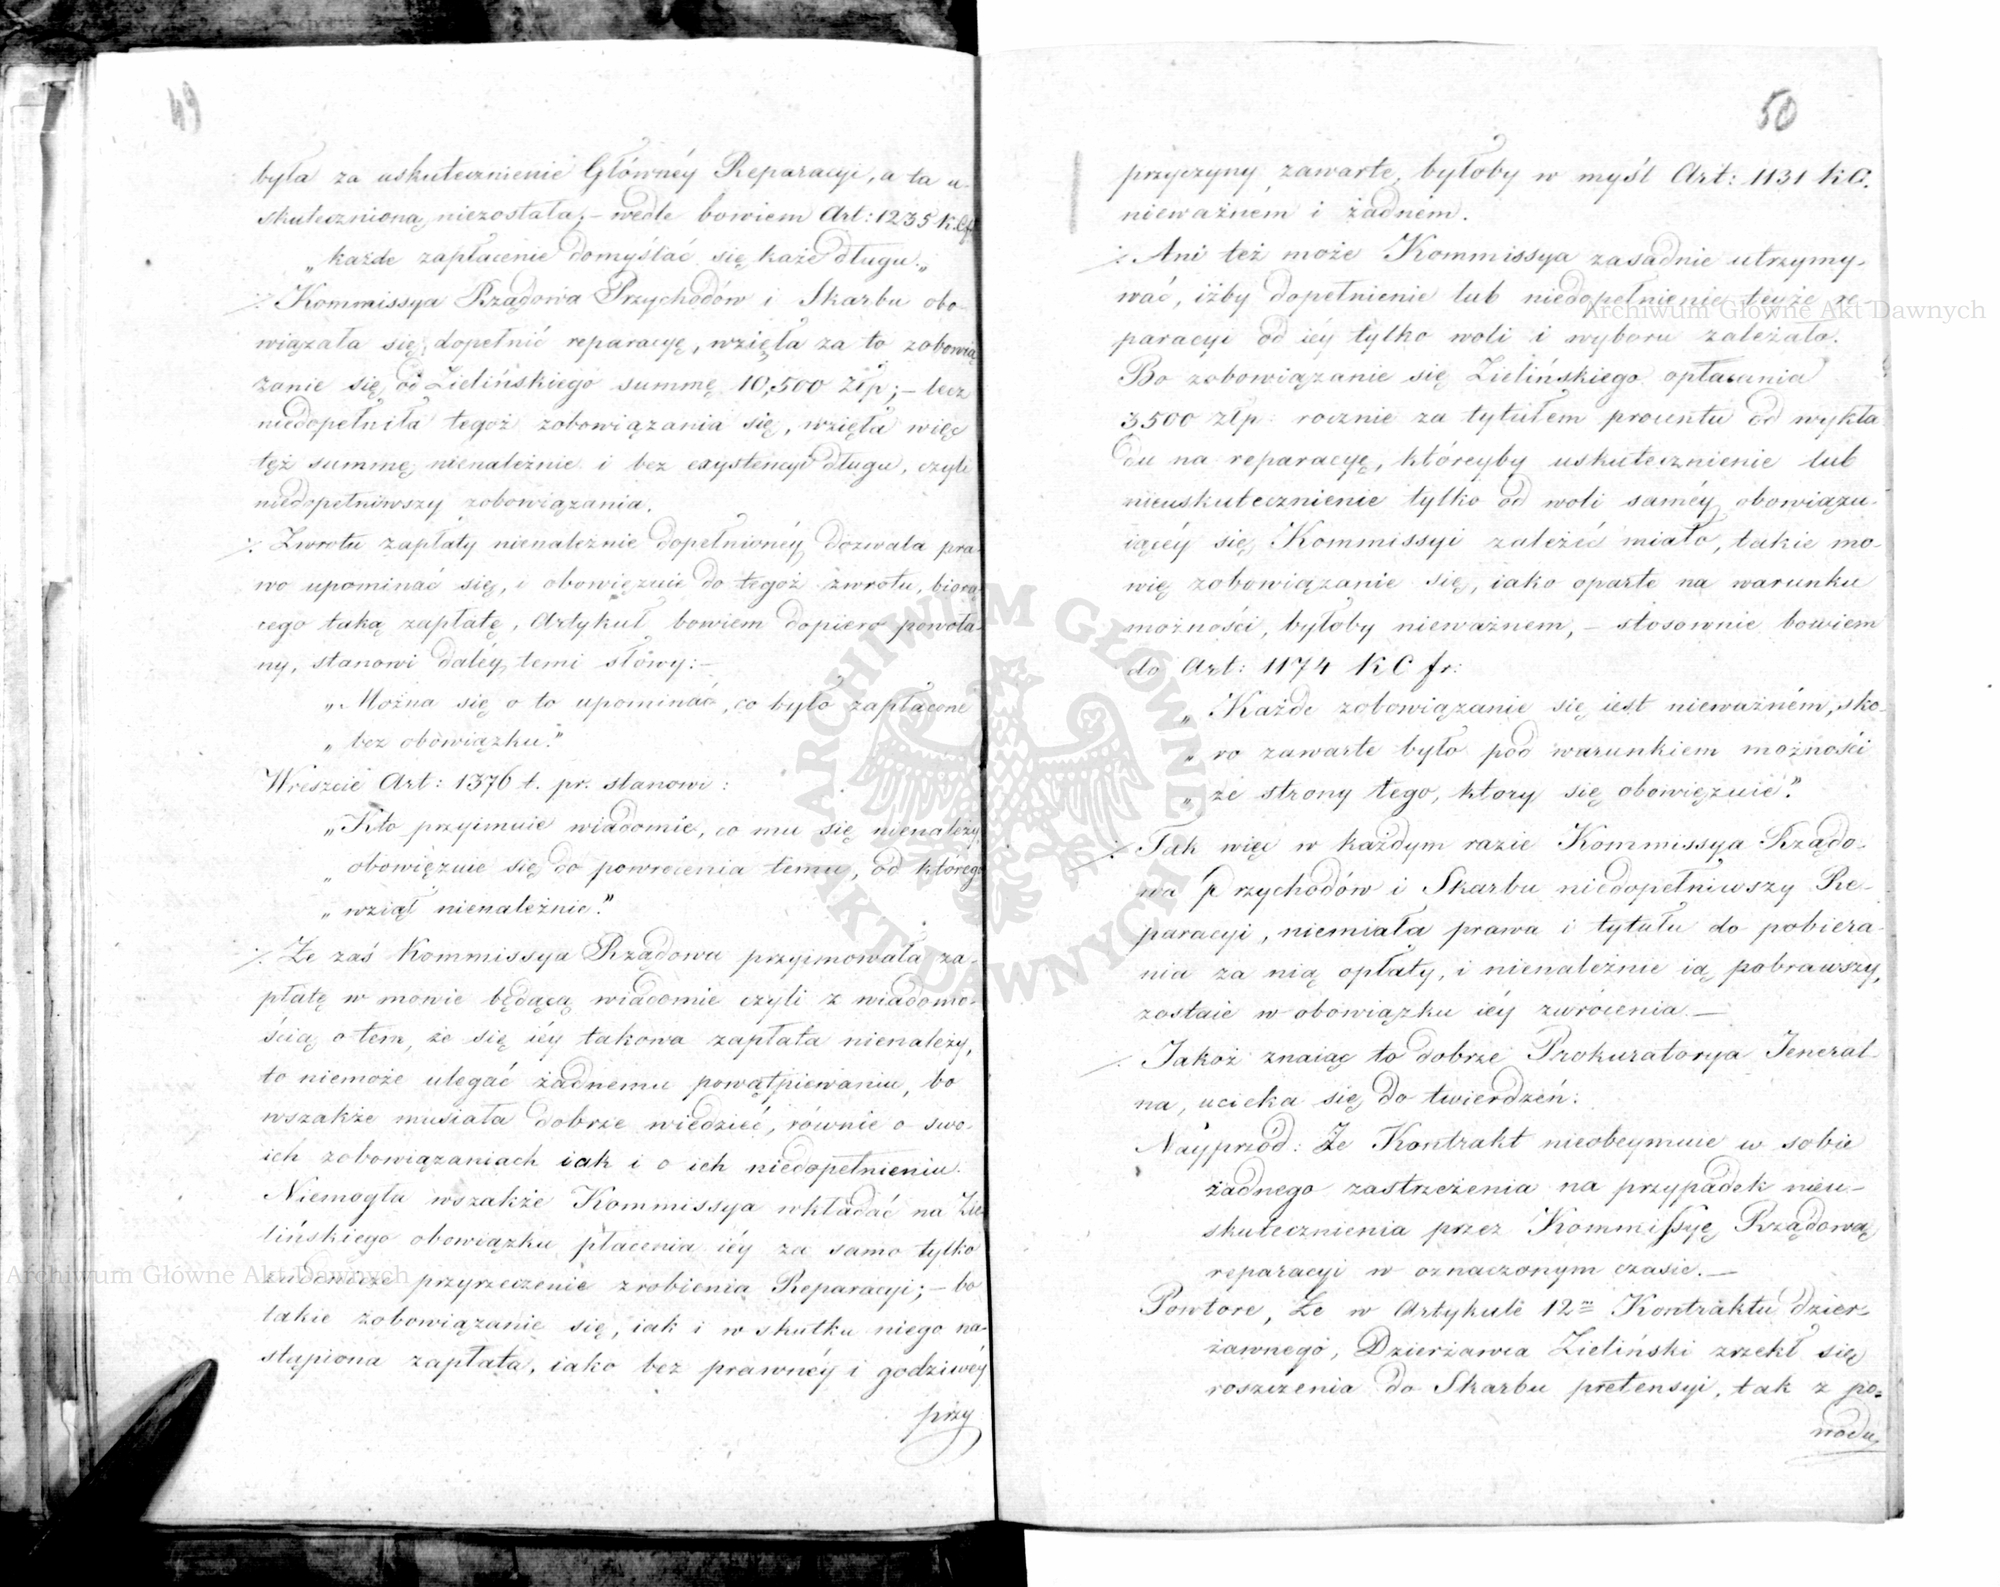 49
była za uskutecznienie Główney Reparacyi, a ta u-
skutecznioną niezostała; – wedle bowiem Art: 1235 K.C.f.
„każde zapłacenie domyślać się każe długu.„
⁒ Kommissya Rządowa Przychodów i Skarbu obo-
wiązała się dopełnić reparacyę, wzięła za to zobowią
zanie się od Zielińskiego summę 10,500 złp; – lecz
niedopełniła tegoż zobowiązania się, wzięła więc
tęż summę nienależnie i bez exystencyi długu, czyli
niedopełniwszy zobowiązania.
⁒ Zwrotu zapłaty nienależnie dopełnionéy dozwala pra-
wo upominać się, i obowięzuie do tegoż zwrotu, biorą
cego taką zapłatę, Artykuł bowiem dopiero powoła-
ny, stanowi daléy temi słowy: –
„Można się o to upominać, co było zapłacone
„bez obowiązku."
Wreszcie Art: 1376 t. pr. stanowi:
„Kto przyimuie wiadomie, co mu się nienależy
„obowięzuie się do powrócenia temu, od którego
„wziął nienależnie."
⁒ Że zaś Kommissya Rządowa przyimowała za-
płatę w mowie będącą wiadomie czyli z wiadomo-
ścią o tem, że się iéy takowa zapłata nienależy,
to niemoże ulegać żadnemu powątpiewaniu, bo
wszakże musiała dobrze wiedzieć, równie o swo-
ich zobowiązaniach iak i o ich niedopełnieniu.
Niemogła wszakże Kommissya wkładać na Zie-
lińskiego obowiązku płacenia iéy za samo tylko
przyrzeczenie zrobienia Reparacyi; – bo
takie zobowiązanie się, iak i w skutku niego na-
stąpiona zapłata, iako bez prawnéy i godziwéy
przy
50
przyczyny zawarte, byłoby w myśl Art: 1131 KC.
nieważnem i żadnem.
⁒ Ani też może Kommissya zasadnie utrzymy-
wać, iżby dopełnienie lub niedopełnienie teyże re
paracyi od iéy tylko woli i wyboru zależało.
Bo zobowiązanie się Zielińskiego opłacania
3500 złp: rocznie za tytułem procentu od wykła
du na reparacyę, któreyby uskutecznienie lub
nieuskutecznienie tylko od woli saméy obowiązu-
iącéy się Kommissyi zależéć miało, takie mo-
wię zobowiązanie się, iako oparte na warunku
możności, byłoby nieważnem, – stosownie bowiem
do Art: 1174 KC fr:
„Każde zobowiązanie się iest nieważném, sko-
„ro zawarte było pod warunkiem możności
„ze strony tego, ktory się obowięzuie."
⁒ Tak więc w każdym razie Kommissya Rządo-
wa Przychodów i Skarbu niedopełniwszy Re-
paracyi, niemiała prawa i tytułu do pobiera-
nia za nią opłaty, i nienależnie ią pobrawszy,
zostaie w obowiązku iéy zwrócenia. –
⁒ Jakoż znaiąc to dobrze Prokuratorya Jeneral-
na, ucieka się do twierdzeń:
Nayprzód: Że Kontrakt nieobeymuie w sobie
żadnego zastrzeżenia na przypadek nieu-
skutecznienia przez Kommissyę Rządową
reparacyi w oznaczonym czasie. –
Powtore, Że w Artykule 12m Kontraktu dzier-
żawnego, Dzierżawca Zieliński zrzekł się
roszczenia do Skarbu pretensyi, tak z po-
wodu
Archiwum Główne Akt Dawnych
Archiwum Główne Akt Dawnych
ARCHIWUM GŁÓWNE AKT DAWNYCH